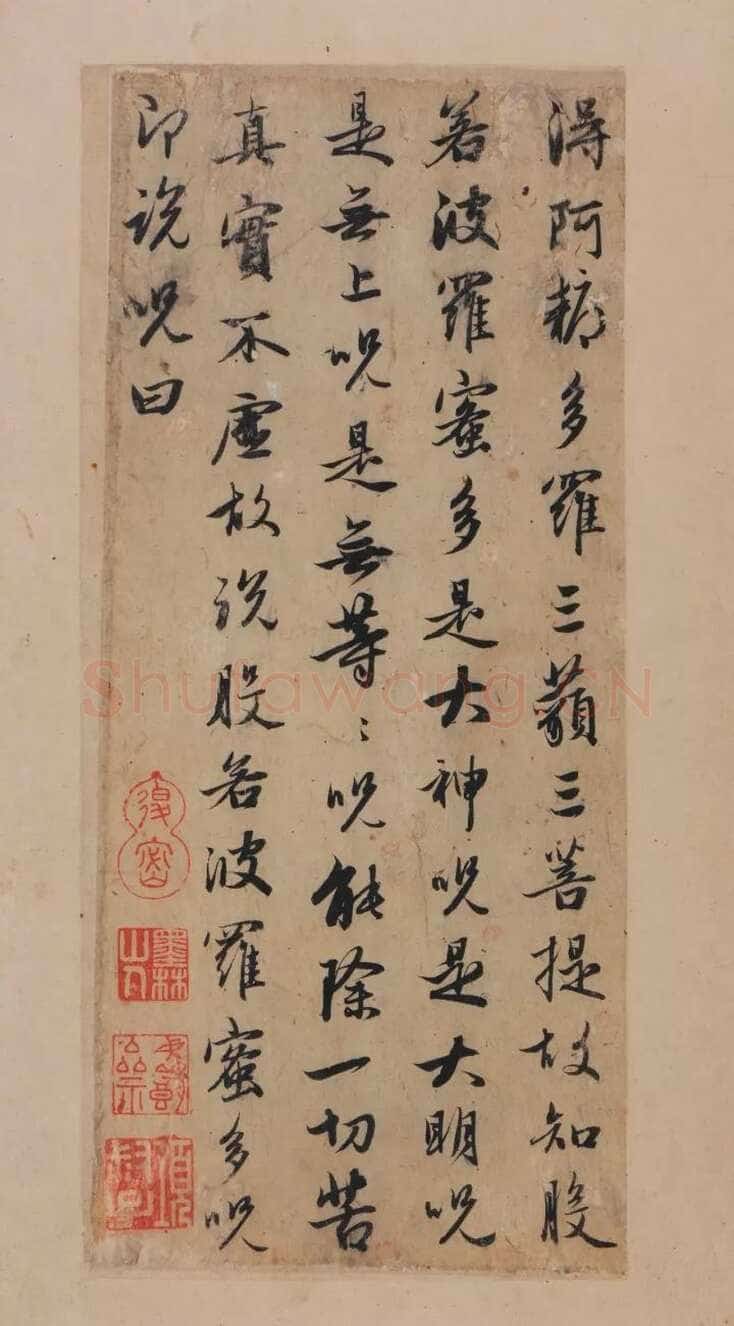 得阿耨多羅三藐三菩提故知般
若波羅蜜多是大神呪是大明呪
是無上呪是無等〻呪能除一切苦
真實不虛故說般若波羅蜜多呪
即說呪曰
墨林山人
Shufawang.CN